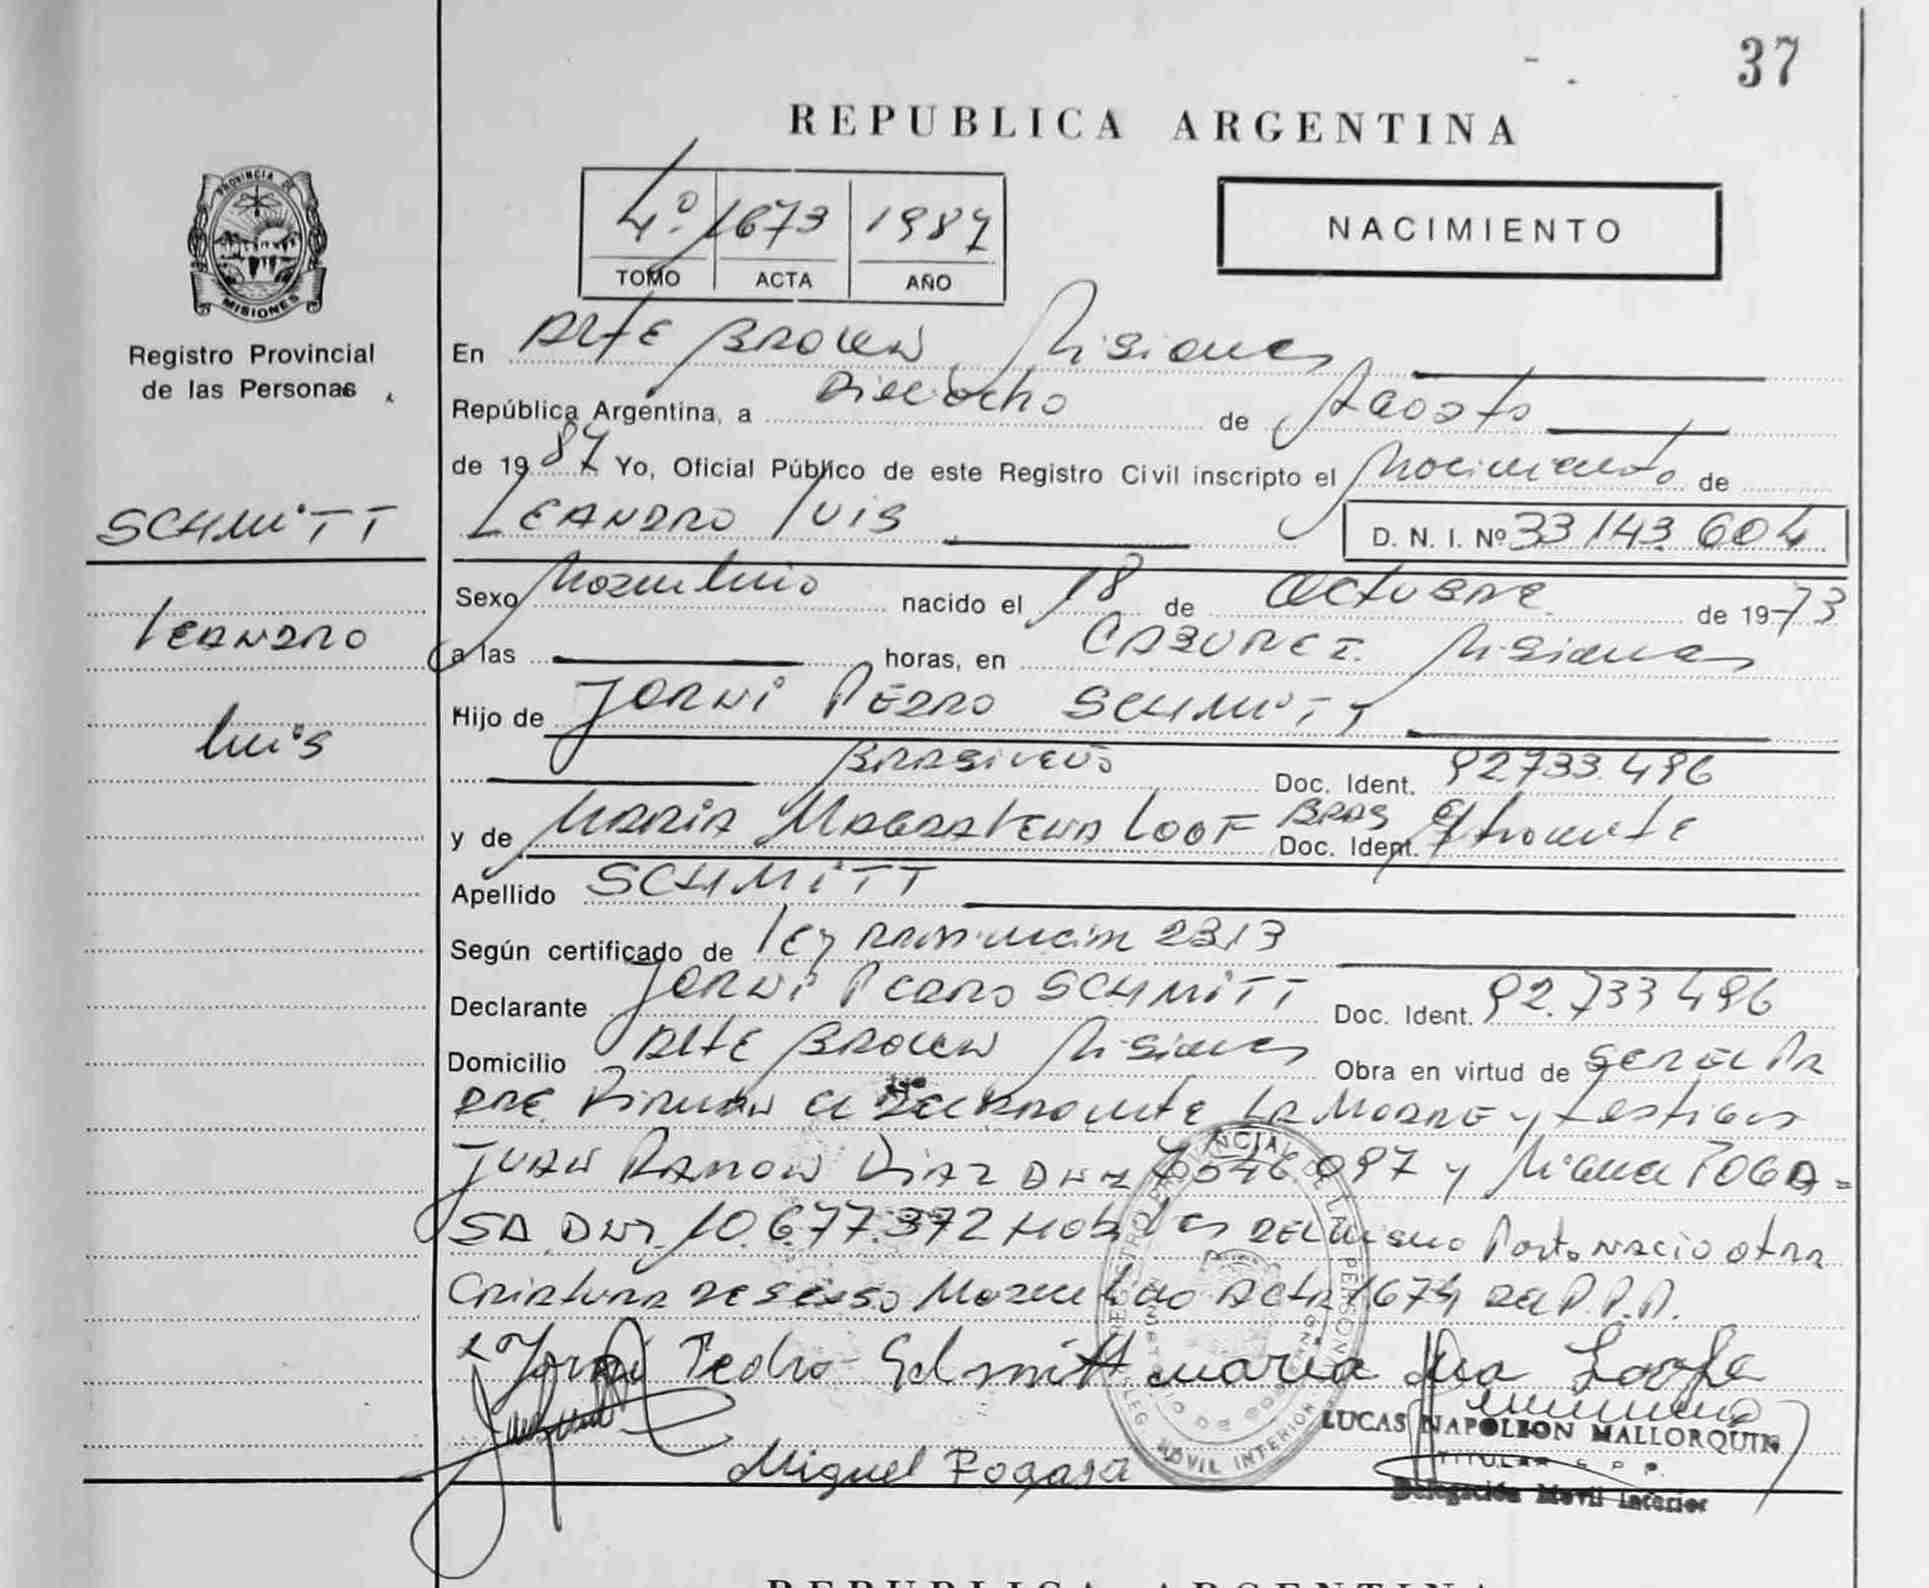 37
REPUBLICA ARGENTINA
4º 1673 1987
TOMO ACTA AÑO
NACIMIENTO
PROVINCIA DE
MISIONES
Registro Provincial
de las Personas
SCHMITT
LEANDRO
Luis
En Alte Brown Misiones
República Argentina, a Dieciocho de Agosto
de 1987 Yo, Oficial Público de este Registro Civil inscripto el Nacimiento de
LEANDRO LUIS D. N. I. Nº 33 143 604
Sexo Masculino nacido el 18 de Octubre de 1973
a las horas, en Misiones
Hijo de JORNI PEDRO SCHMITT
BRASILEÑO Doc. Ident. 92733.496
y de MARIA LOOF BRAS Doc. Ident.
Apellido SCHMITT
Según certificado de Ley 2313
Declarante JORNI PEDRO SCHMITT Doc. Ident. 92.733 496
Domicilio Alte Brown Misiones Obra en virtud de SER EL PA
DRE. Firman el Declarante LA MADRE y testigos
JUAN RAMON DIAZ DNI 097 y Miguel FOGA=
SA DNI. 10.677.372 del mismo Parto NACIO otra
Criatura de sexso Masculino Acta 1674 del P.P.D.
Jorni Pedro Schmitt Maria Loofe
Miguel Fogasa
REGISTRO PROVINCIAL DE LAS PERSONAS
MOVIL INTERIOR
LUCAS NAPOLEON MALLORQUIN
TITULAR
Delegación Movil Interior
REPUBLICA ARGENTINA